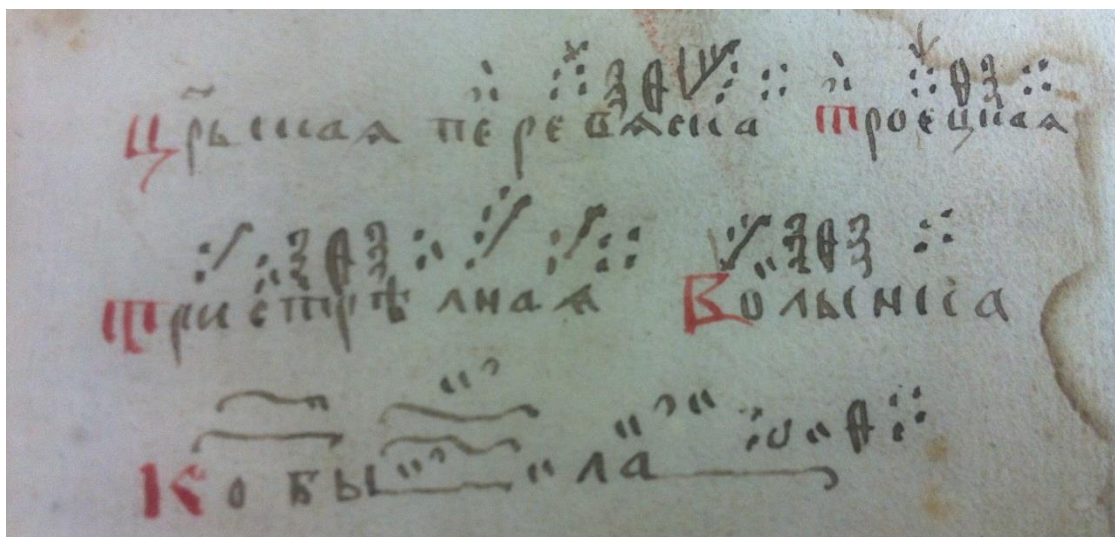 Црьская перевяска Троецкая
Тристрѣлная Волынка
Кобыла